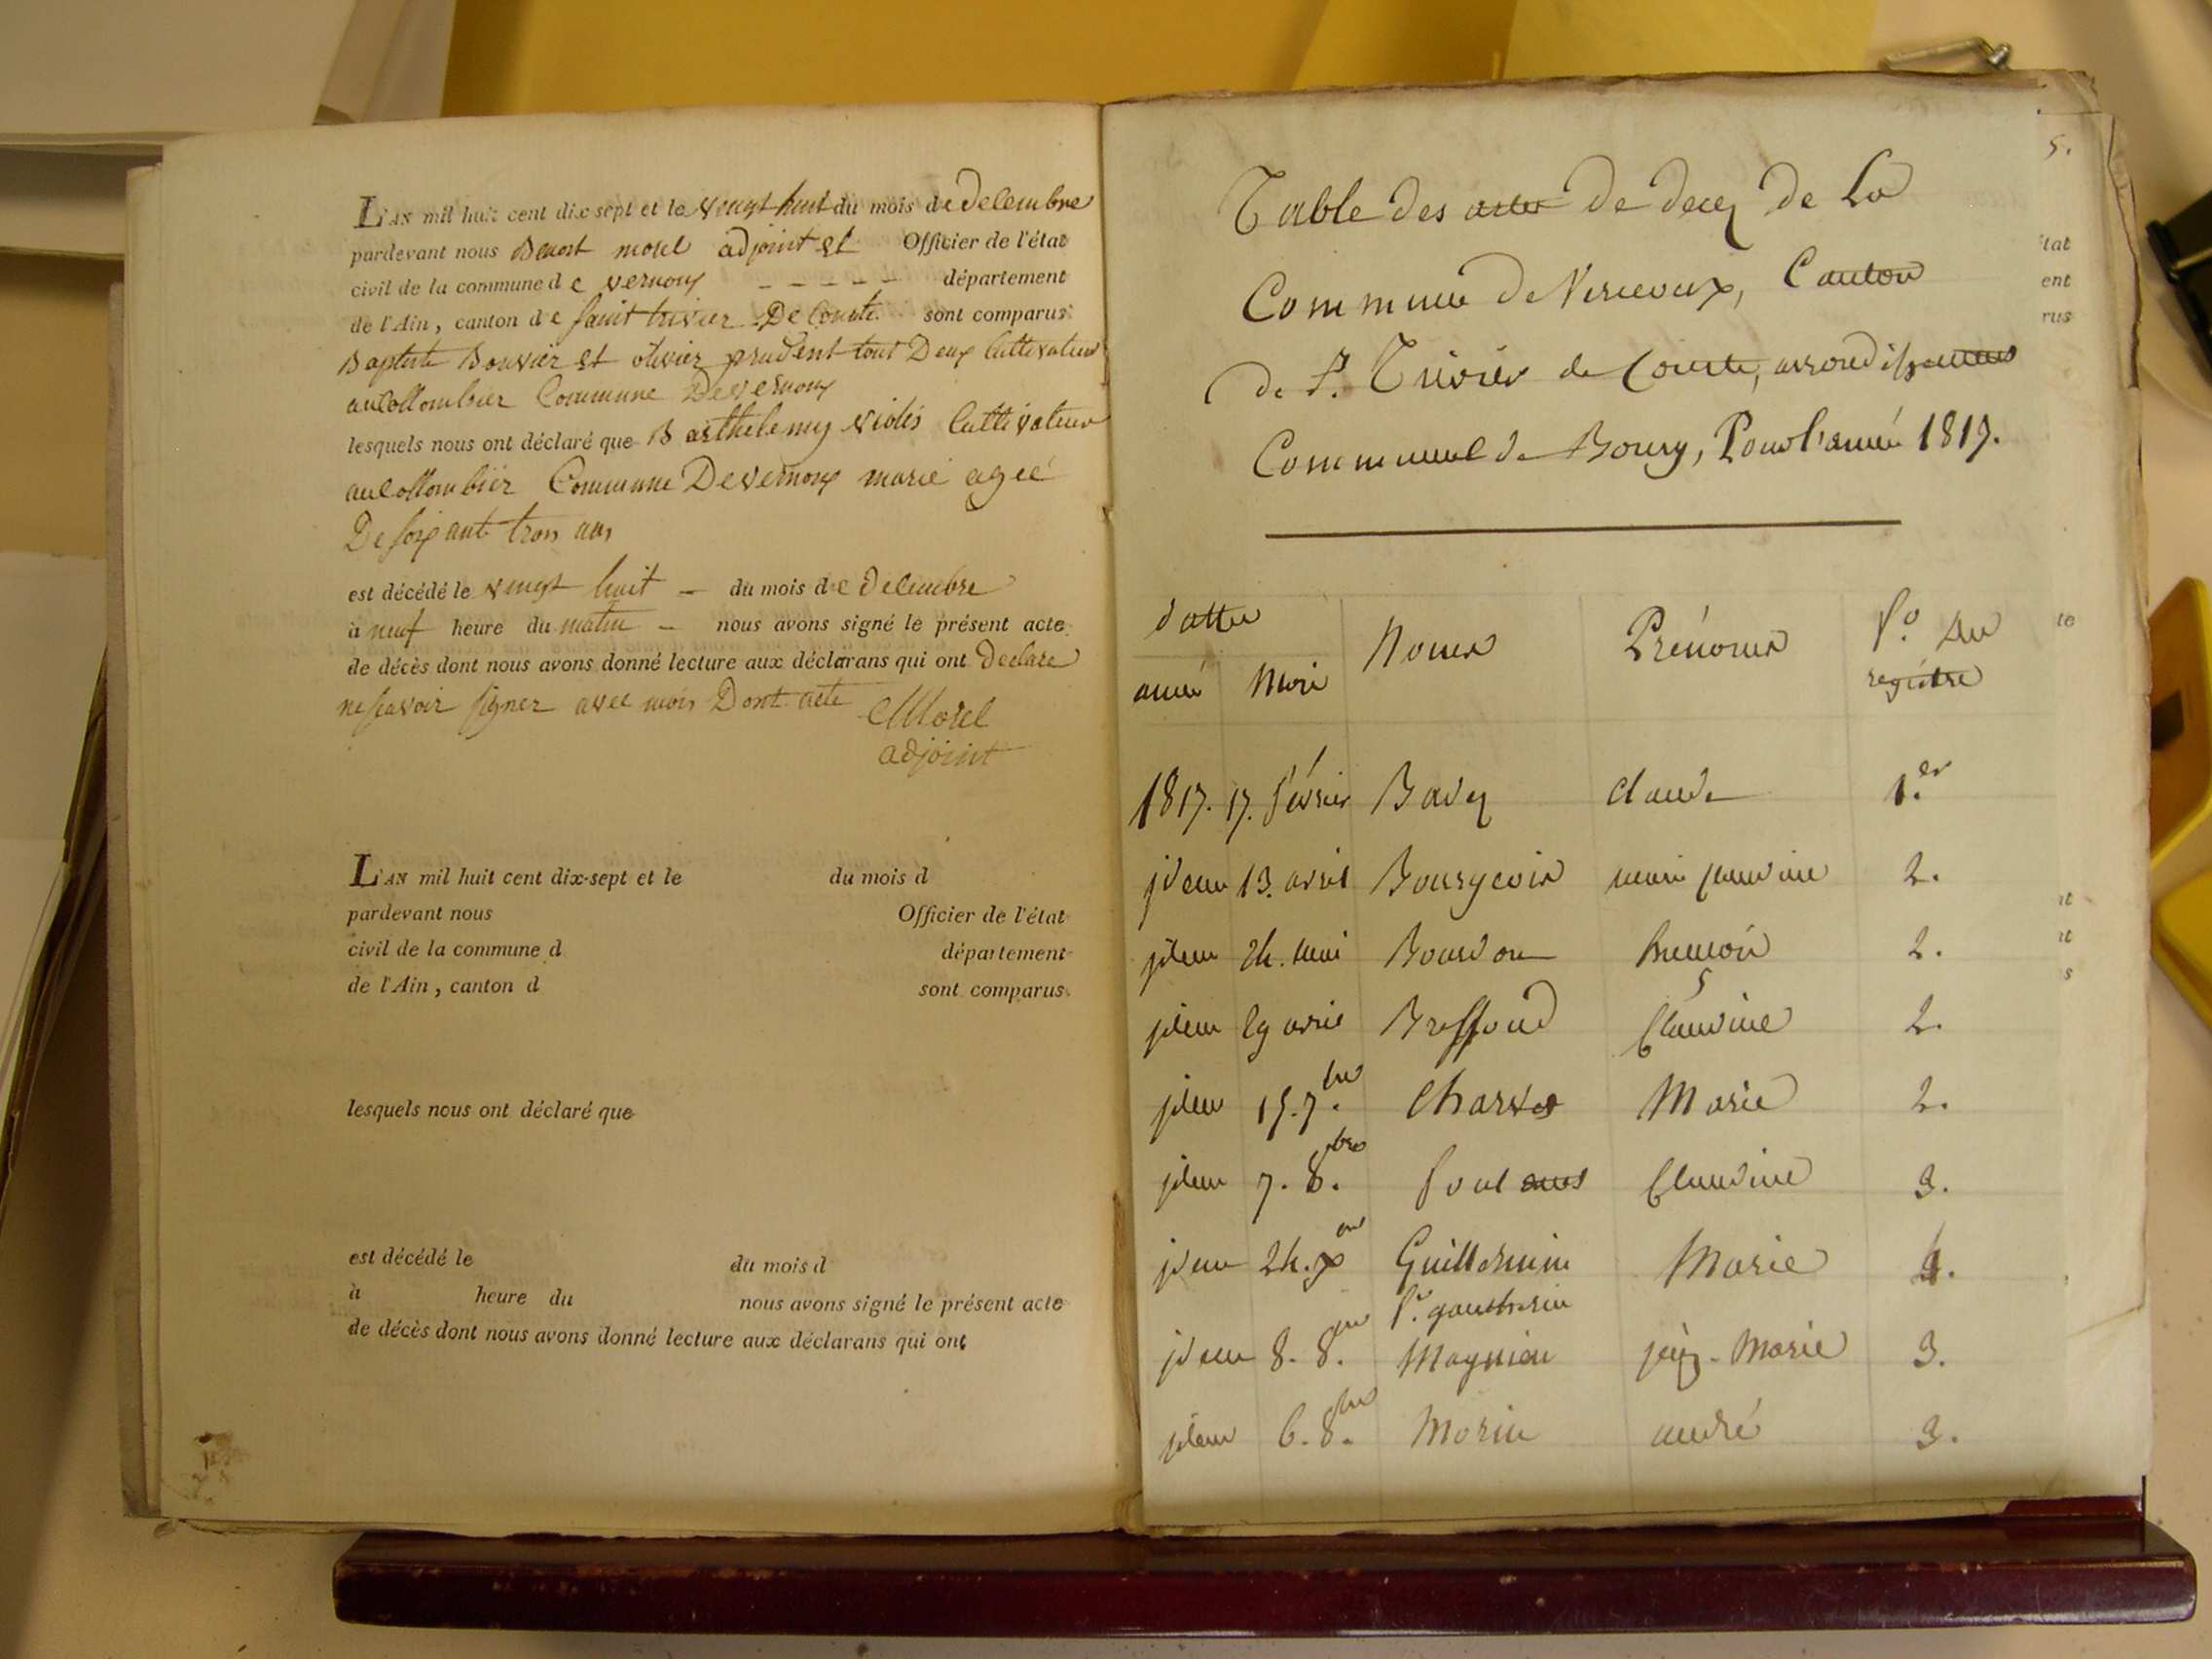 L'AN mil huit cent dix-sept et le vingt huit du mois de decembre
pardevant nous Benoit morel adjoint et Officier de l'état
civil de la commune de vernoux - - - - - département
de l'Ain, canton de saint trivier De Courte sont comparus
Baptiste Bouvier et olivier prudent tout Deux Cultivateur
au Collombier Commune De vernoux
lesquels nous ont déclaré que Barthelemy violés Cultivateur
au Collombier Commune De vernoux marié agée
De soixant trois ans
est décédé le vingt huit - du mois de decembre
à neuf heure du matin - nous avons signé le présent acte
de décès dont nous avons donné lecture aux déclarans qui ont declaré
ne scavoir signer avec mois Dont acte Morel
adjoint
L'AN mil huit cent dix-sept et le du mois d
pardevant nous Officier de l'état
civil de la commune d département
de l'Ain, canton d sont comparus
lesquels nous ont déclaré que
est décédé le du mois d
à heure du nous avons signé le présent acte
de décès dont nous avons donné lecture aux déclarans qui ont
5.
Table des actes de decez de La
Commune de Canton
de St. Trivier de Courte, arrondissement
Communal de Bourg, Pour l'année 1817.
dattes Noms Prénoms fo. du
registre
année Mois
1817. 17. février Badez claude 1.er
idem 13. avril Bourgeois marie claudine 2.
idem 24. mai Bourdon 2.
idem 29 avril Breffond Claudine 2.
idem 15. 7.bre Marie 2.
idem 7. 8.bre Claudine 3.
idem 24. xbre Guillermin Marie 4.
fe. gautherin
idem 8. 8.bre Magnien Marie 3.
idem 6. 8.bre Morin andré 3.
tat
ent
rus
te
nt
s